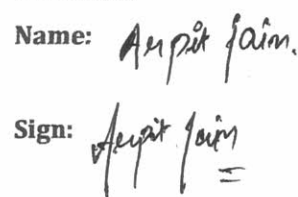 Name: Arpit Jain.
Sign: Arpit Jain